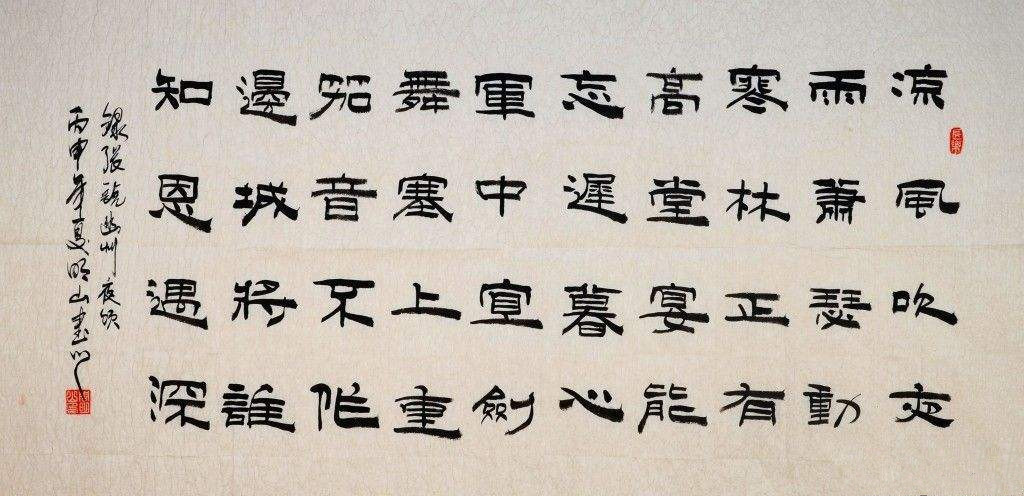 涼風吹夜
雨蕭瑟動
寒林正有
高堂宴能
忘遲暮心
軍中宜劍
舞塞上重
笳音不作
邊城將誰
知恩遇深
錄張說幽州夜飲
丙申年夏明山書